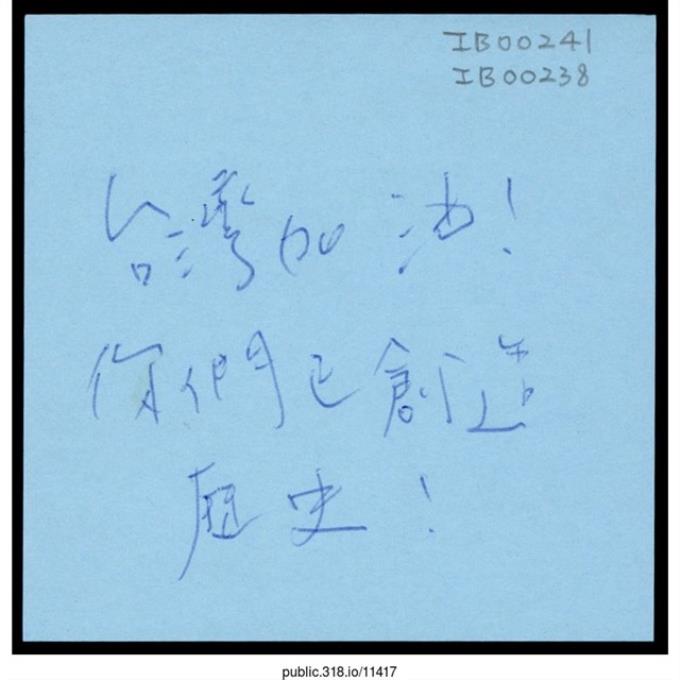 IB00241
IB00238
台灣加油!
你們已創造
歷史!
public.318.io/11417